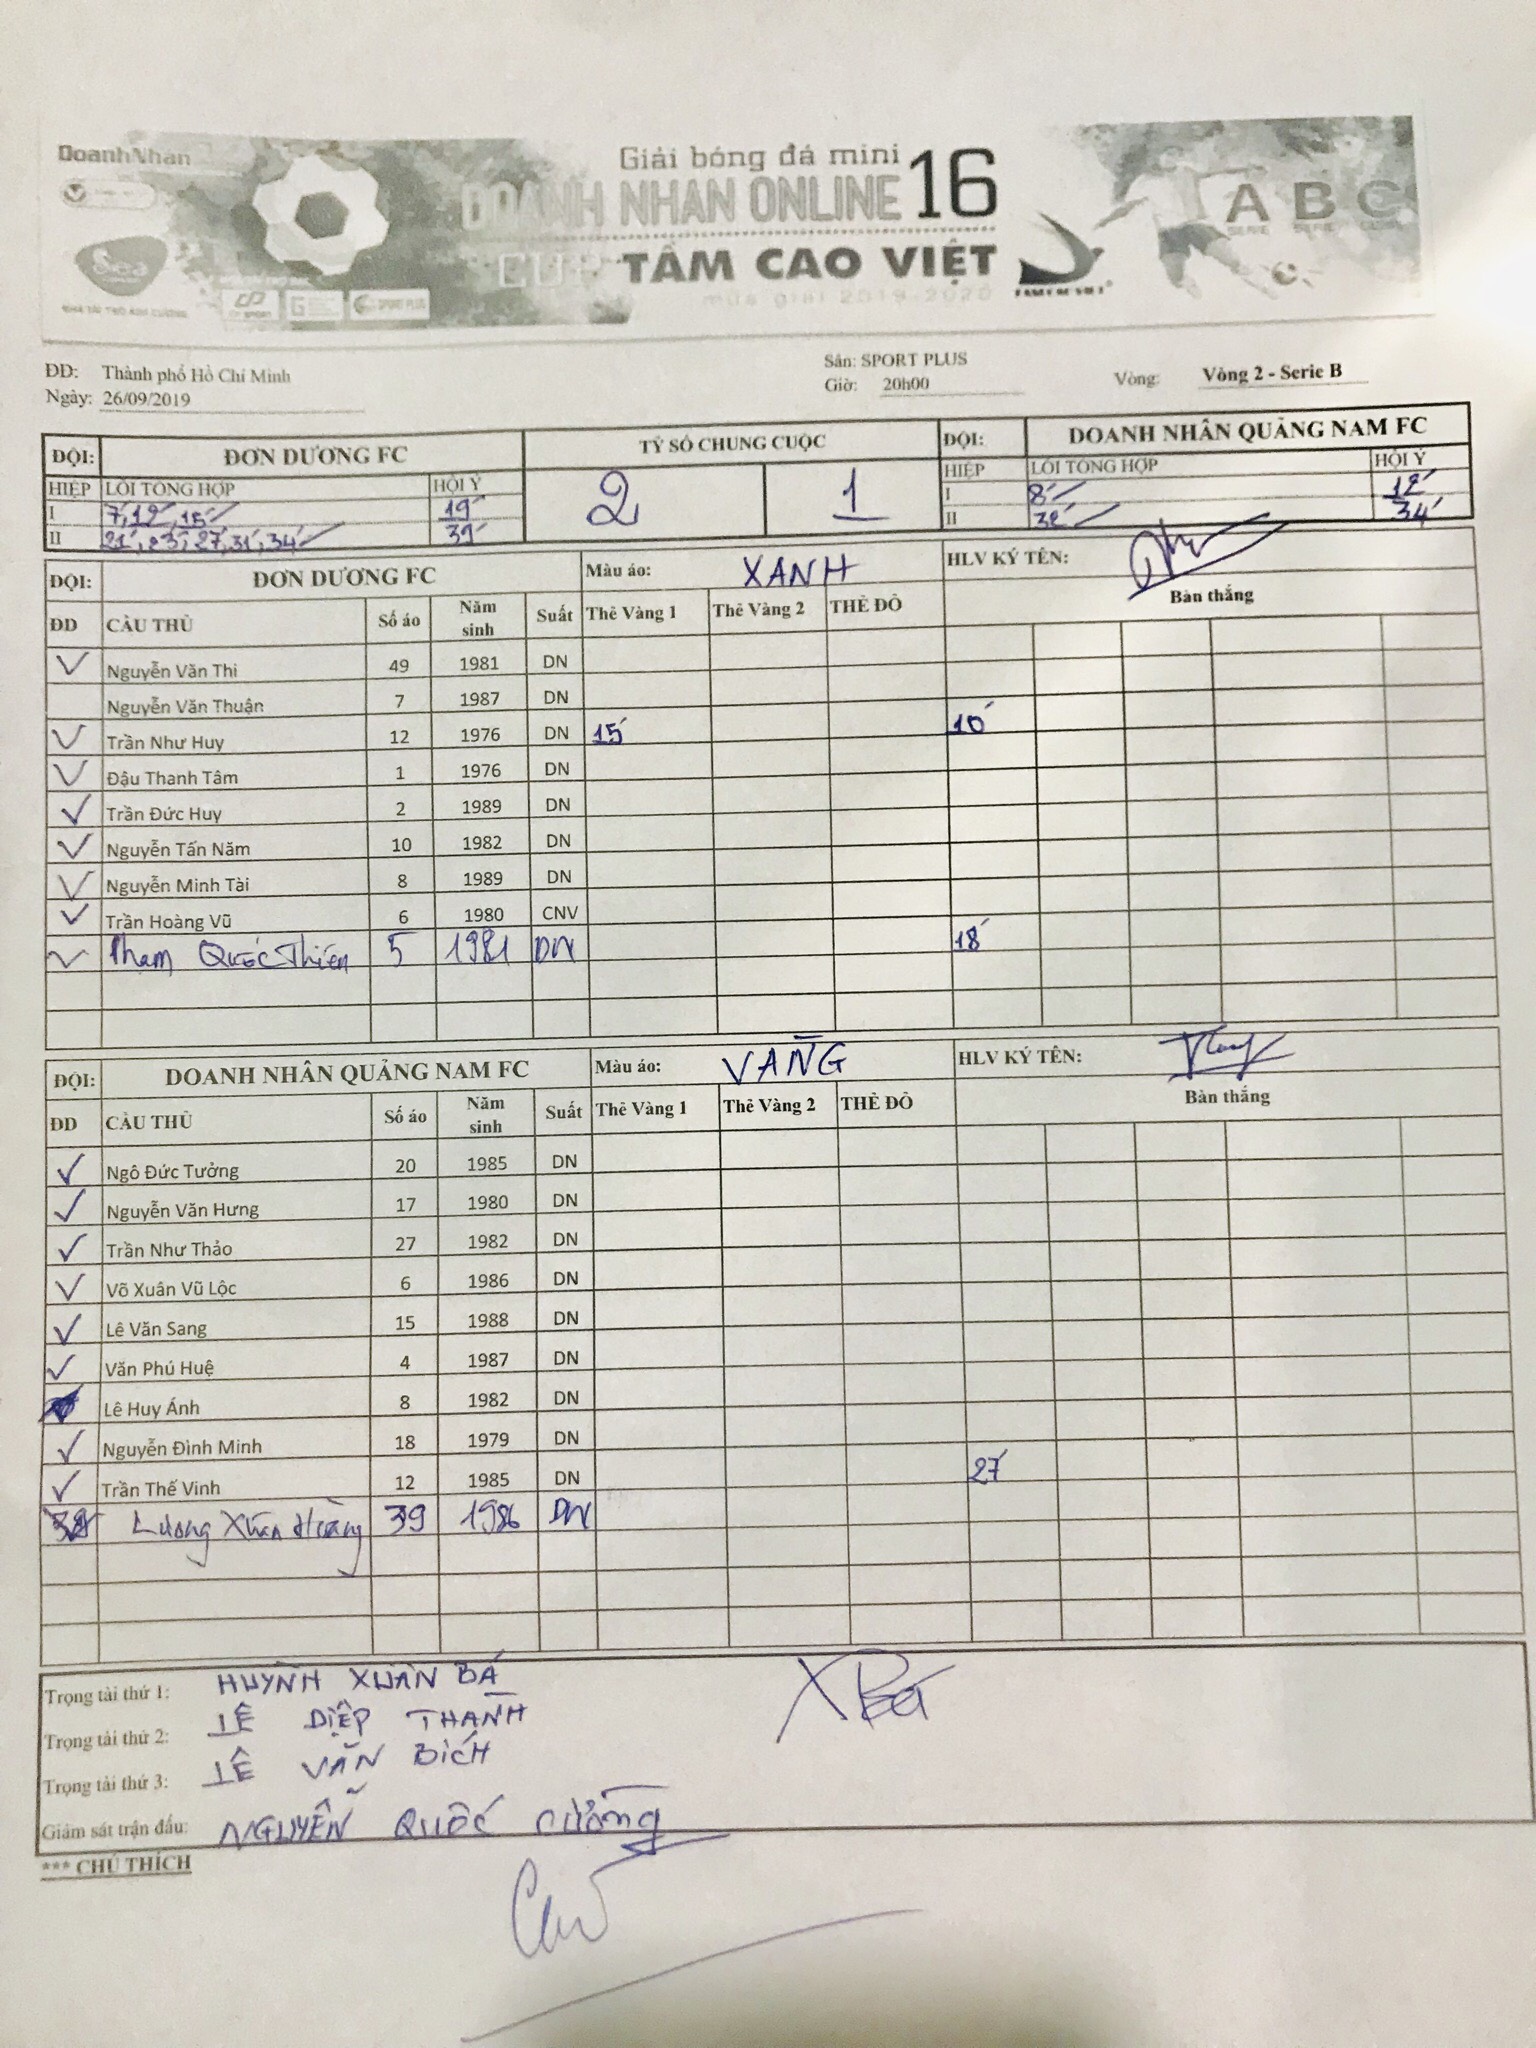 DoanhNhan
Giải bóng đá mini
DOANH NHAN ONLINE 16
CUP TẦM CAO VIỆT
mùa giải 2019-2020
NHÀ TÀI TRỢ KIM CƯƠNG
SPORT PLUS
TAM CAO VIET
A B C
SERIE SERIE
ĐĐ: Thành phố Hồ Chí Minh Sân: SPORT PLUS
Ngày: 26/09/2019 Giờ: 20h00 Vòng: Vòng 2 - Serie B
ĐỘI: ĐƠN DƯƠNG FC TỶ SỐ CHUNG CUỘC ĐỘI: DOANH NHÂN QUẢNG NAM FC
HIỆP LỖI TỔNG HỢP HỘI Ý 2 1 HIỆP LỖI TỔNG HỢP HỘI Ý
I 7', 12', 15' 19' I 8' 12'
II 21', 23', 27', 31', 34' 39' II 32' 34'
ĐỘI: ĐƠN DƯƠNG FC Màu áo: XANH HLV KÝ TÊN:
ĐD CẦU THỦ Số áo Năm sinh Suất Thẻ Vàng 1 Thẻ Vàng 2 THẺ ĐỎ Bàn thắng
Nguyễn Văn Thi 49 1981 DN
Nguyễn Văn Thuận 7 1987 DN
Trần Như Huy 12 1976 DN 15' 10'
Đậu Thanh Tâm 1 1976 DN
Trần Đức Huy 2 1989 DN
Nguyễn Tấn Năm 10 1982 DN
Nguyễn Minh Tài 8 1989 DN
Trần Hoàng Vũ 6 1980 CNV
Phạm Quốc Thiên 5 1981 DN 18'
ĐỘI: DOANH NHÂN QUẢNG NAM FC Màu áo: VÀNG HLV KÝ TÊN:
ĐD CẦU THỦ Số áo Năm sinh Suất Thẻ Vàng 1 Thẻ Vàng 2 THẺ ĐỎ Bàn thắng
Ngô Đức Tưởng 20 1985 DN
Nguyễn Văn Hưng 17 1980 DN
Trần Như Thảo 27 1982 DN
Võ Xuân Vũ Lộc 6 1986 DN
Lê Văn Sang 15 1988 DN
Văn Phú Huệ 4 1987 DN
Lê Huy Ánh 8 1982 DN
Nguyễn Đình Minh 18 1979 DN
Trần Thế Vinh 12 1985 DN 27'
Lương Xuân Hoàng 39 1986 DN
Trọng tài thứ 1: HUỲNH XUÂN BÁ
Trọng tài thứ 2: LÊ DIỆP THÀNH
Trọng tài thứ 3: LÊ VĂN BÍCH
Giám sát trận đấu: NGUYỄN QUỐC CƯỜNG
*** CHÚ THÍCH